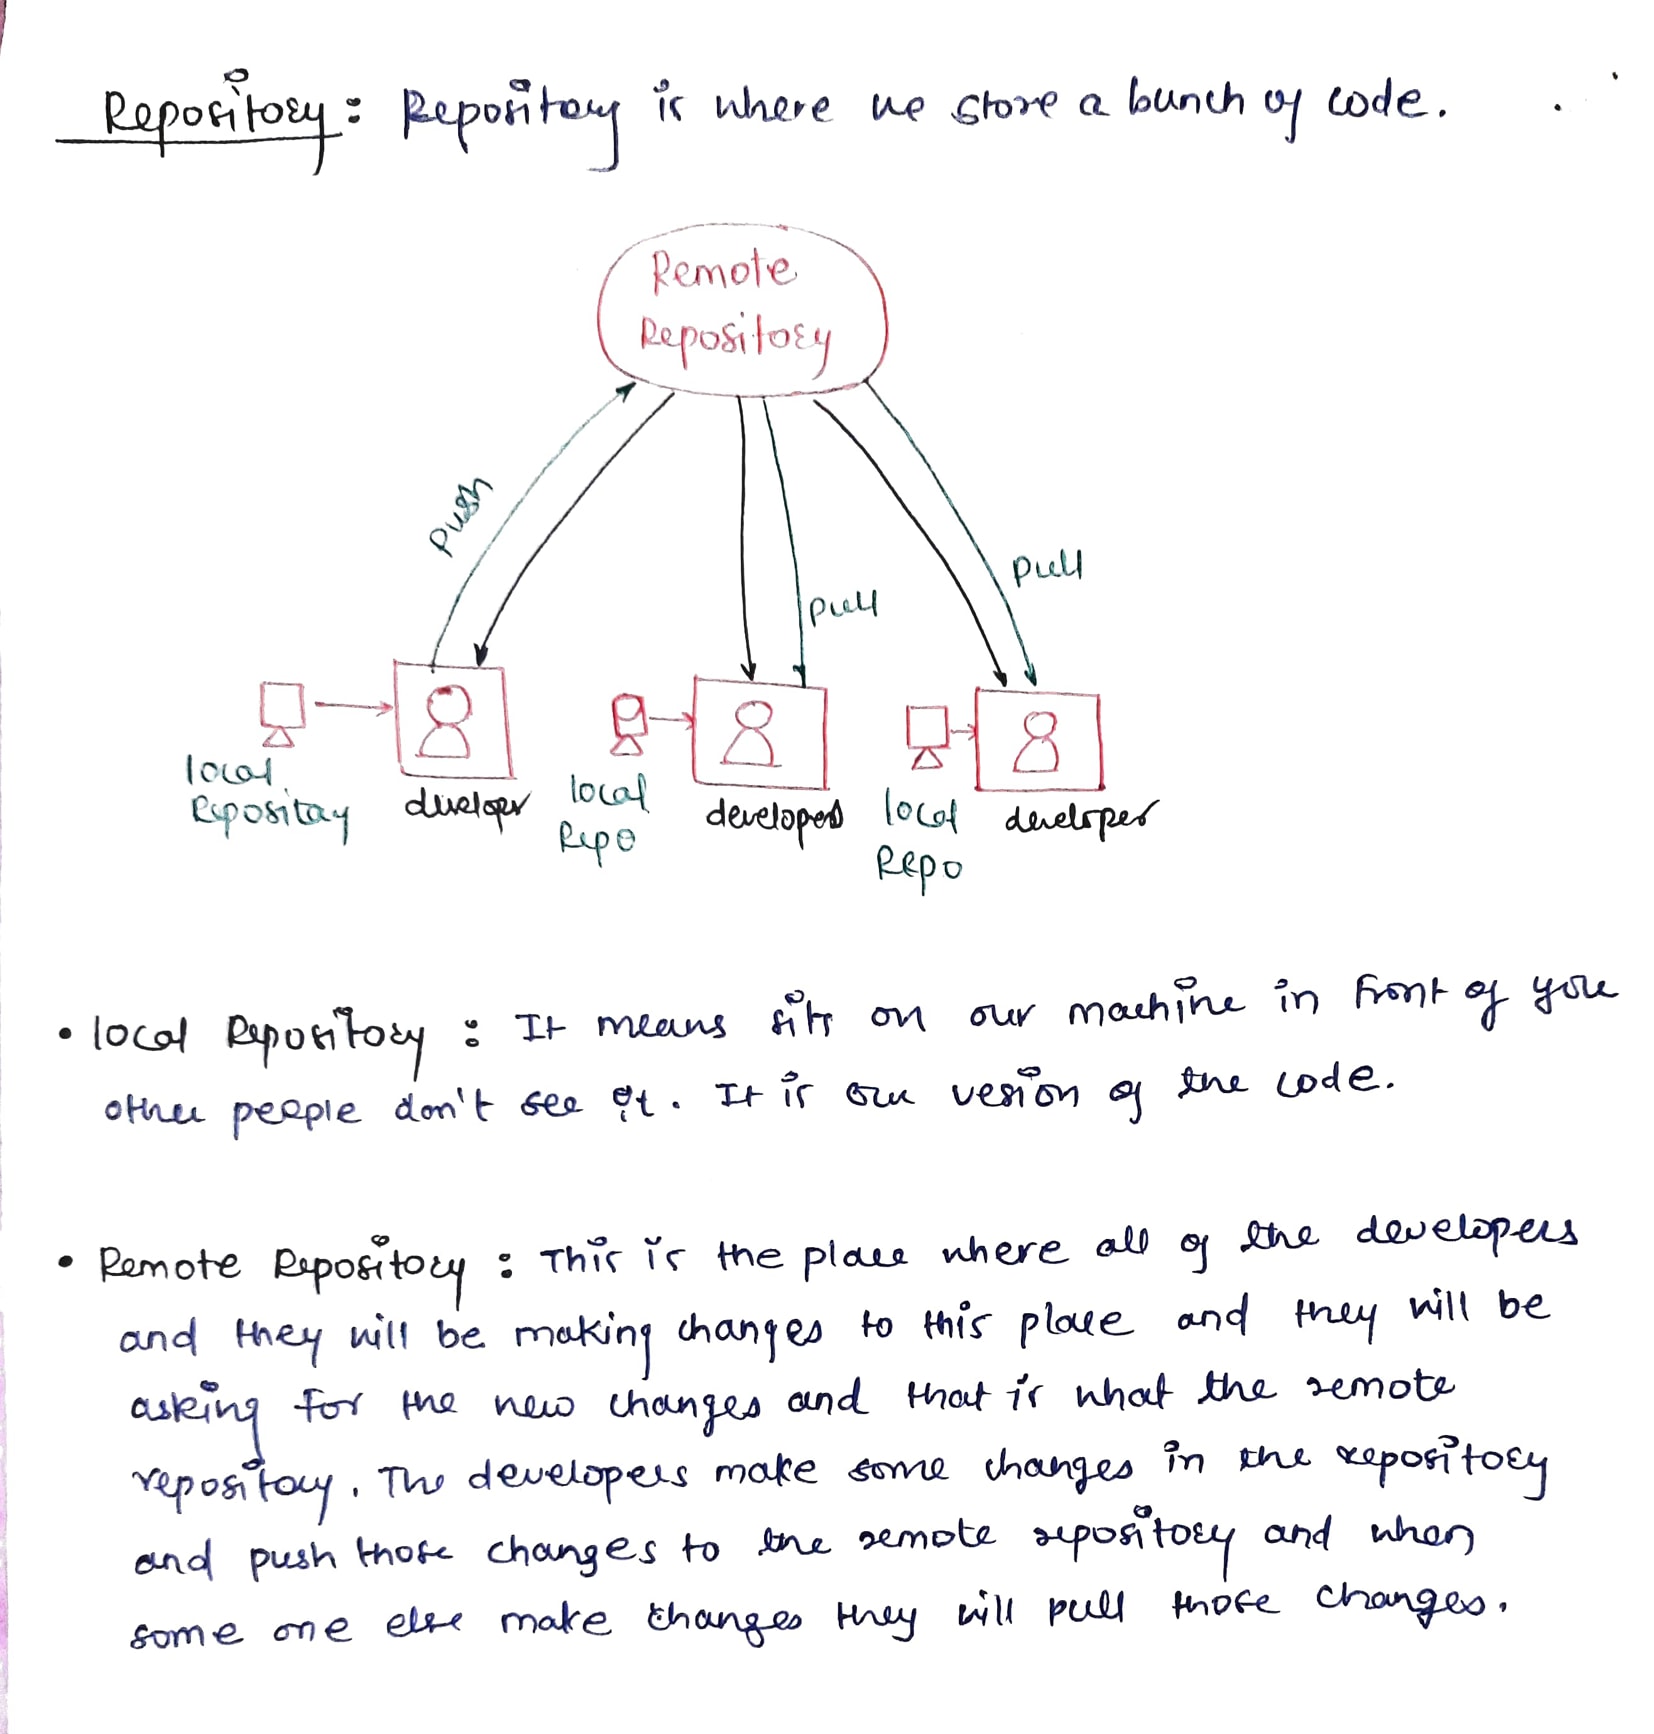 Repository: Repository is where we store a bunch of code.
Remote
Repository
Push
Pull
Pull
local
Repository
developer
local
Repo
developer
local
Repo
developer
• local Repository : It means sits on our machine in front of you
other people don't see it. It is our vesion of the code.
• Remote Repository : This is the place where all of the developers
and they will be making changes to this place and they will be
asking for the new changes and that is what the remote
repository. The developers make some changes in the repository
and push those changes to the remote repository and when
some one else make changes they will pull those changes.